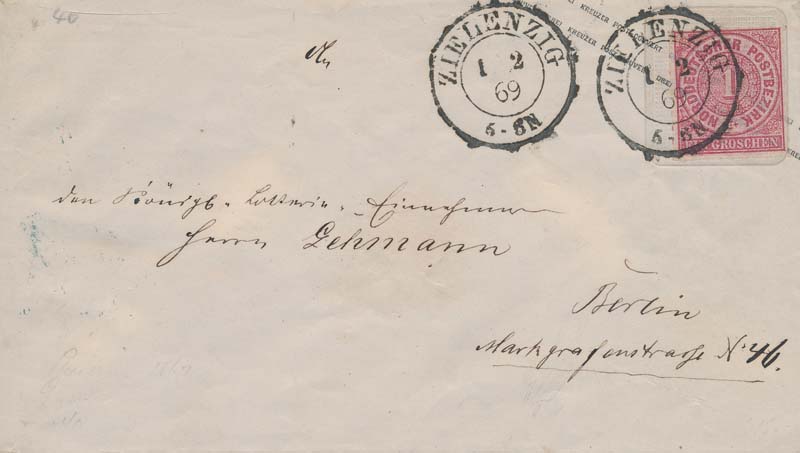 40
ZIELENZIG
1 2
69
5-8N
ZIELENZIG
1 2
69
5-8N
NORDDEUTSCHER POSTBEZIRK
1
GROSCHEN
KREUZER POST
An
den Königl. Lotterie-Einnehmer
Herrn Lehmann
Berlin
Markgrafenstrasse No 46.